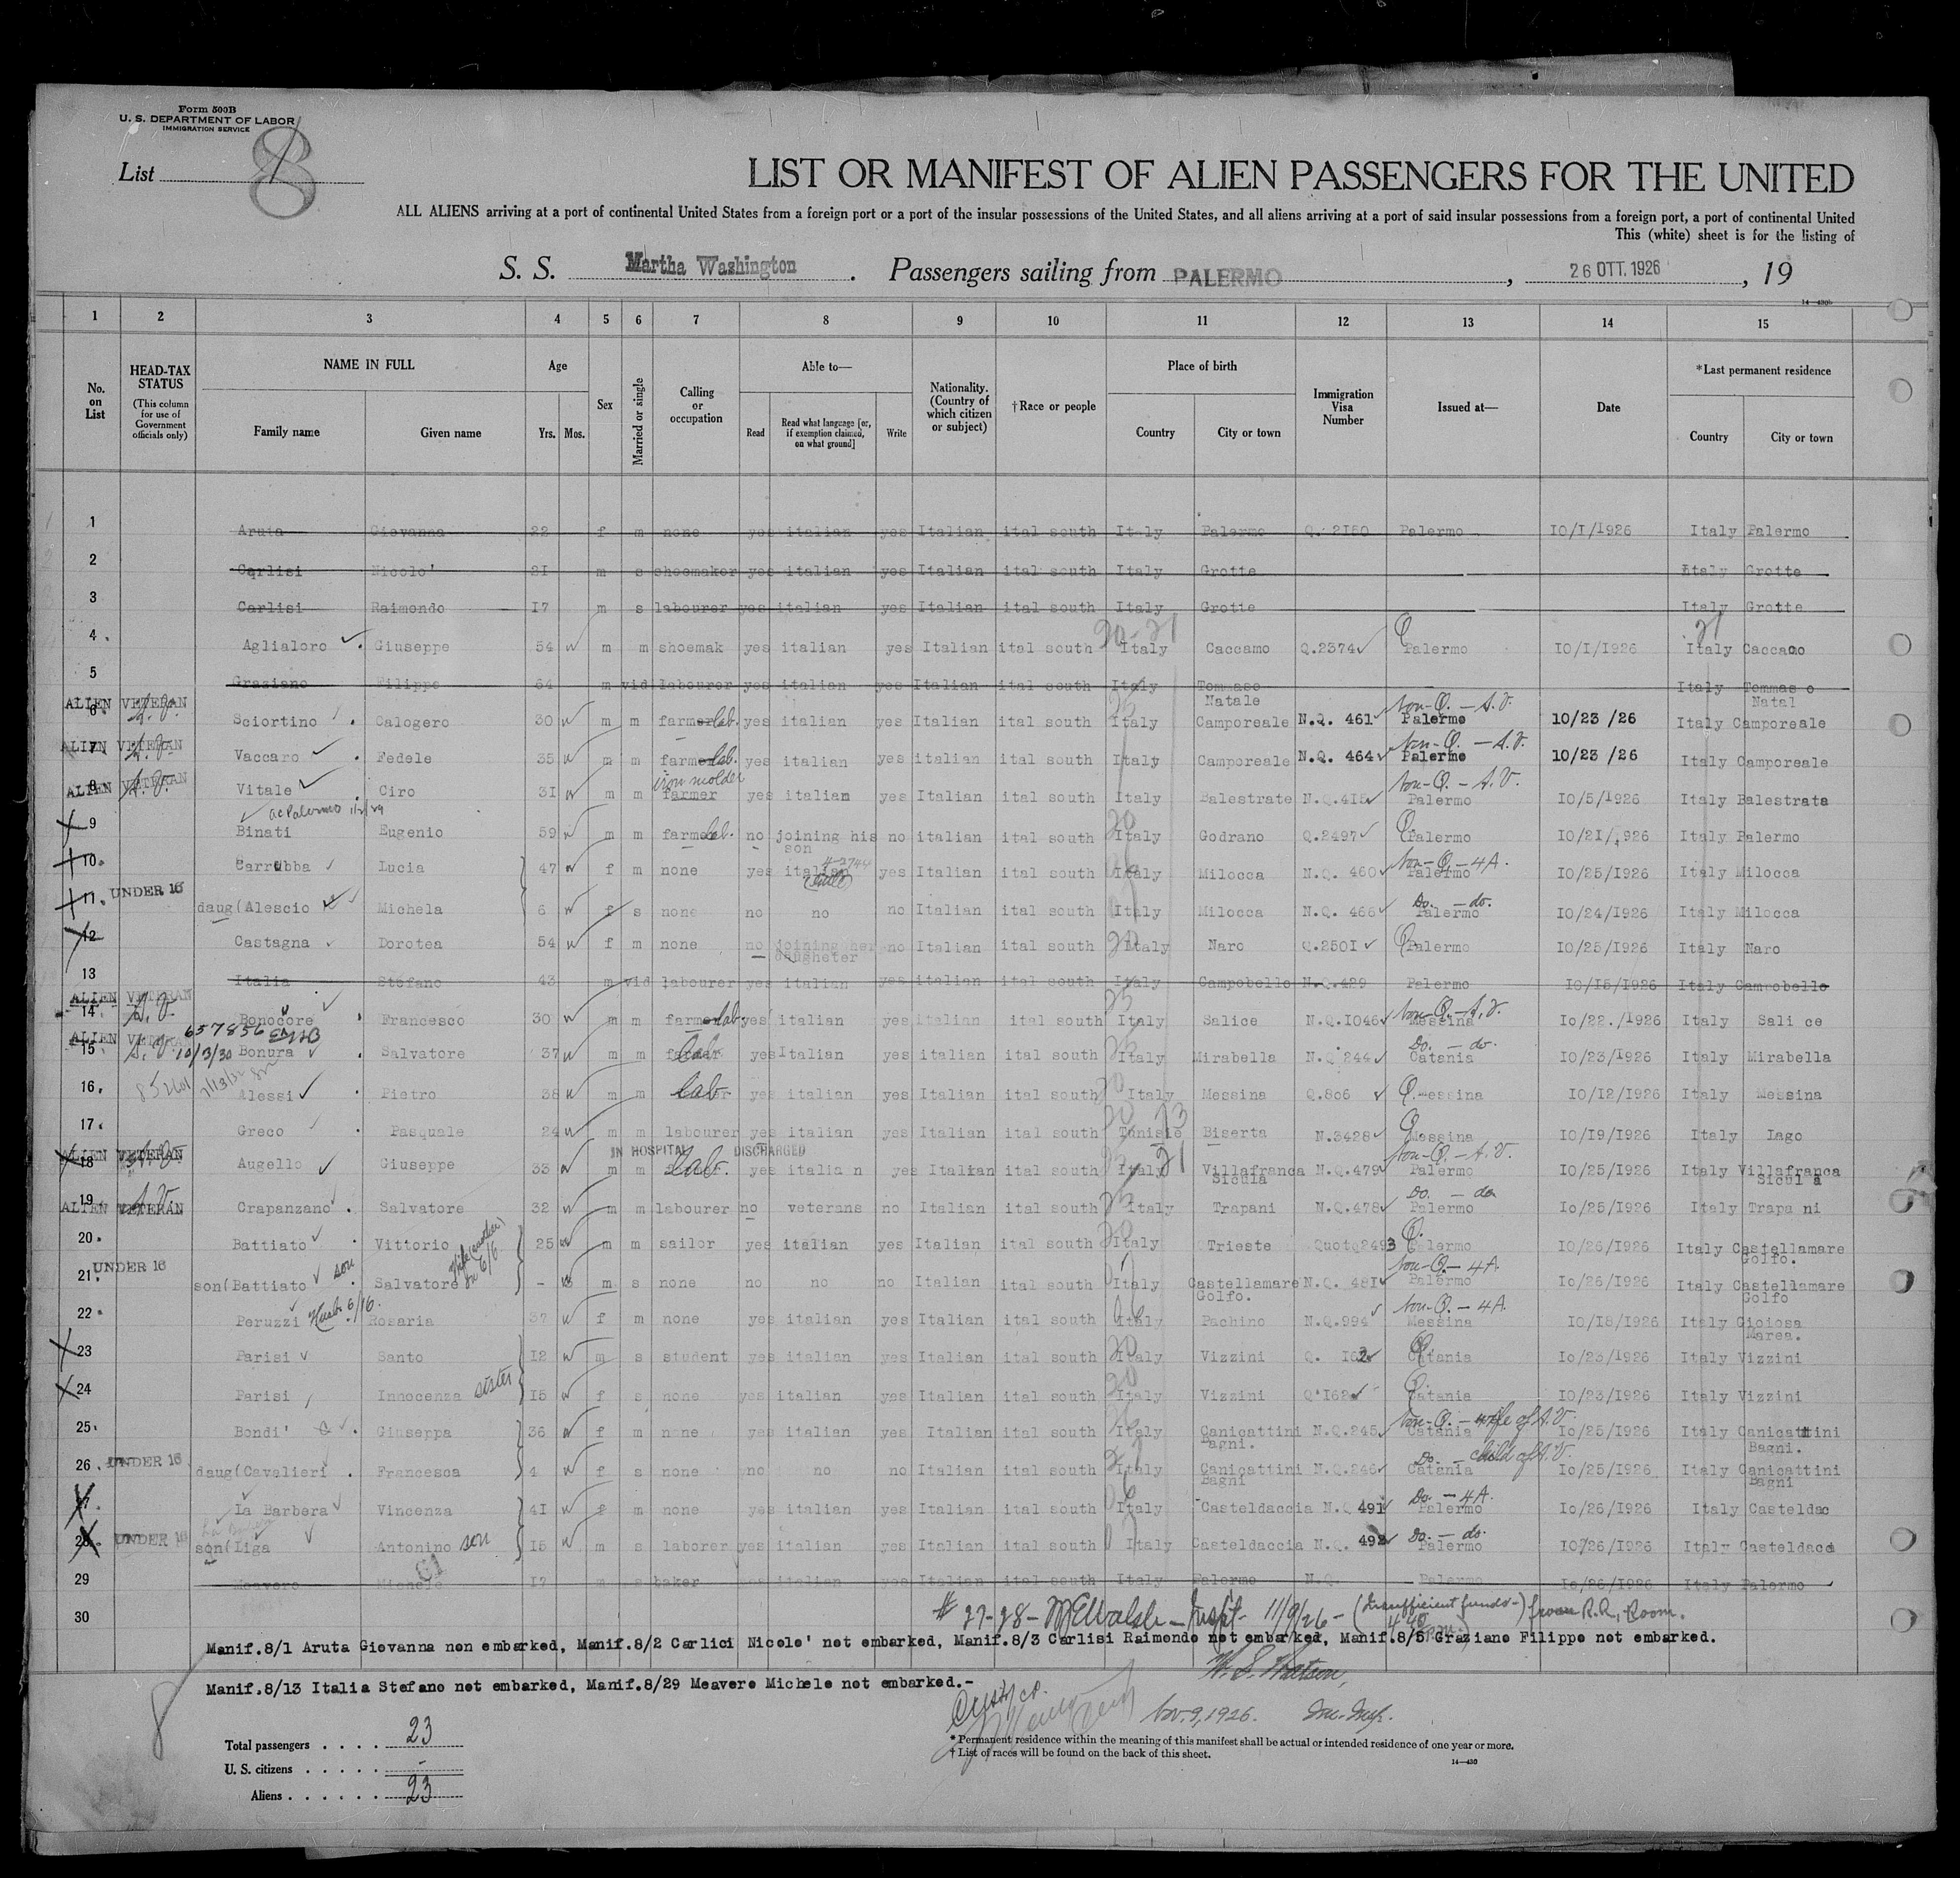 Form 500B
U. S. DEPARTMENT OF LABOR
IMMIGRATION SERVICE
List 8
LIST OR MANIFEST OF ALIEN PASSENGERS FOR THE UNITED
ALL ALIENS arriving at a port of continental United States from a foreign port or a port of the insular possessions of the United States, and all aliens arriving at a port of said insular possessions from a foreign port, a port of continental United
This (white) sheet is for the listing of
S. S. Martha Washington. Passengers sailing from PALERMO, 26 OTT. 1926, 19
14—430b
1 2 3 4 5 6 7 8 9 10 11 12 13 14 15
No. on List
HEAD-TAX STATUS (This column for use of Government officials only)
NAME IN FULL Family name Given name
Age Yrs. Mos.
Sex
Married or single
Calling or occupation
Able to— Read Read what language [or, if exemption claimed, on what ground] Write
Nationality. (Country of which citizen or subject)
†Race or people
Place of birth Country City or town
Immigration Visa Number
Issued at—
Date
*Last permanent residence Country City or town
1 Aruta Giovanna 22 f m none yes italian yes Italian ital south Italy Palermo Q. 2180 Palermo 10/1/1926 Italy Palermo
2 Carlisi Nicolo' 21 m s shoemaker yes italian yes Italian ital south Italy Grotte Italy Grotte
3 Carlisi Raimondo 17 m s labourer yes italian yes Italian ital south Italy Grotte Italy Grotte
20-21 Q 21
4 Aglialoro Giuseppe 54 m m shoemak yes italian yes Italian ital south Italy Caccamo Q.2374 Palermo 10/1/1926 Italy Caccamo
5 Graziano Filippo 64 m vid labourer yes italian yes Italian ital south Italy Tommaso Natale Italy Tommaso Natal
ALIEN VETERAN A.V. Non-Q. - A.V.
6 Sciortino Calogero 30 m m farmer lab. yes italian yes Italian ital south Italy Camporeale N.Q. 461 Palermo 10/23/26 Italy Camporeale
ALIEN VETERAN A.V. Non-Q. - A.V.
7 Vaccaro Fedele 35 m m farmer lab. yes italian yes italian ital south Italy Camporeale N.Q. 464 Palermo 10/23/26 Italy Camporeale
ALIEN VETERAN A.V. iron molder Non-Q. - A.V.
8 Vitale Ciro 31 m m farmer yes italian yes Italian ital south Italy Balestrate N.Q.415 Palermo 10/5/1926 Italy Balestrata
9 Binati Eugenio 59 m m farmer lab. no joining his son no italian ital south Italy Godrano Q.2497 Palermo 10/21/1926 Italy Palermo
Non-Q. - 4A.
10 Carrubba Lucia 47 f m none yes italian yes Italian ital south Italy Milocca N.Q. 460 Palermo 10/25/1926 Italy Milocca
UNDER 16 Do. - do.
11 daug(Alescio Michela 6 f s none no no no Italian ital south Italy Milocca N.Q. 466 Palermo 10/24/1926 Italy Milocca
12 Castagna Dorotea 54 f m none no joining her daugheter no Italian ital south Italy Naro Q.2501 Palermo 10/25/1926 Italy Naro
13 Italia Stefano 43 m vid labourer yes italian yes italian ital south Italy Campobello N.Q.429 Palermo 10/15/1926 Italy Campobello
ALIEN VETERAN A.V. Non-Q.-A.V.
14 Bonocore Francesco 30 m m farmer lab. yes italian yes italian ital south Italy Salice N.Q.1046 Messina 10/22./1926 Italy Salice
ALIEN VETERAN A.V. 657856 10/3/30 Do. - do.
15 Bonura Salvatore 37 m m lab. yes Italian yes italian ital south Italy Mirabella N.Q.244 Catania 10/23/1926 Italy Mirabella
16 Alessi Pietro 38 m m lab. yes italian yes Italian ital south Italy Messina Q.806 Messina 10/12/1926 Italy Messina
17 Greco Pasquale 24 m m labourer yes italian yes Italian ital south Tunisie Biserta N.3428 Messina 10/19/1926 Italy Iago
ALIEN VETERAN IN HOSPITAL DISCHARGED Non-Q. - A.V.
18 Augello Giuseppe 33 m m lab. yes italian yes Italian ital south Italy Villafranca Sicula N.Q.479 Palermo 10/25/1926 Italy Villafranca Sicula
ALIEN VETERAN A.V. Do. - do
19 Crapanzano Salvatore 32 m m labourer no veterans no Italian ital south Italy Trapani N.Q.478 Palermo 10/25/1926 Italy Trapani
20 Battiato Vittorio 25 m m sailor yes italian yes Italian ital south Italy Trieste Quota2493 Palermo 10/26/1926 Italy Castellamare Golfo.
UNDER 16 Non-Q. - 4A
21 son(Battiato son Salvatore - m s none no no no Italian ital south Italy Castellamare Golfo. N.Q. 481 Palermo 10/26/1926 Italy Castellamare Golfo
Non-Q. - 4A.
22 Peruzzi Husb. 6/16. Rosaria 37 f m none yes italian yes Italian ital south Italy Pachino N.Q.994 Messina 10/18/1926 Italy Gioiosa Marea.
23 Parisi Santo 12 m s student yes italian yes Italian ital south Italy Vizzini Q. 162 Catania 10/23/1926 Italy Vizzini
24 Parisi Innocenza sister 15 f s none yes italian yes Italian ital south Italy Vizzini Q.162 Catania 10/23/1926 Italy Vizzini
Non-Q. - wife of A.V.
25 Bondi' Giuseppa 36 f m none yes italian yes Italian ital south Italy Canicattini Bagni. N.Q.245 Catania 10/25/1926 Italy Canicattini Bagni.
UNDER 16 Do. - child of A.V.
26 daug(Cavalieri Francesca 4 f s none no no no Italian ital south Italy Canicattini Bagni N.Q.246 Catania 10/25/1926 Italy Canicattini Bagni
Do. - 4A.
27 La Barbera Vincenza 41 f m none yes italian yes Italian ital south Italy Casteldaccia N.Q. 491 Palermo 10/26/1926 Italy Casteldac
UNDER 16 Do. - do.
28 son(Liga Antonino son 15 m s laborer yes italian yes Italian ital south Italy Casteldaccia N.Q. 492 Palermo 10/26/1926 Italy Casteldacc
29 Meavero Michele 17 m s baker yes italian yes Italian ital south Italy Palermo N.Q. Palermo 10/26/1926 Italy Palermo
30 # 27-28- Inspt- 11/9/26- (Insufficient funds-) from R.R. Room.
Manif.8/1 Aruta Giovanna non embarked, Manif.8/2 Carlici Nicolo' not embarked, Manif.8/3 Carlisi Raimondo not embarked, Manif.8/5 Graziano Filippo not embarked.
W. S. Watson,
Manif.8/13 Italia Stefano not embarked, Manif.8/29 Meavero Michele not embarked.-
Nov. 9, 1926. Im. Insp.
Total passengers . . . . 23
U. S. citizens . . . . . -
Aliens . . . . . . 23
* Permanent residence within the meaning of this manifest shall be actual or intended residence of one year or more.
† List of races will be found on the back of this sheet.
14—430